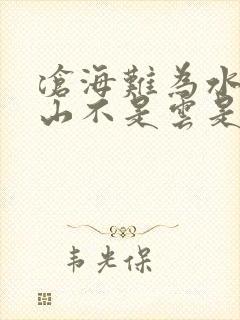 滄海難為水
山不是雲是
韦光保